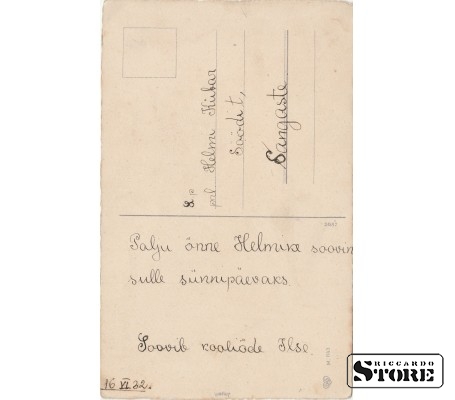 prl Helmi Kübar
Söödi t,
Sangaste
Palju õnne Helmike soovin
sulle sünnipäevaks
Soovib kooliõde Ilse.
16 VI 32.
RICCARDO
STORE